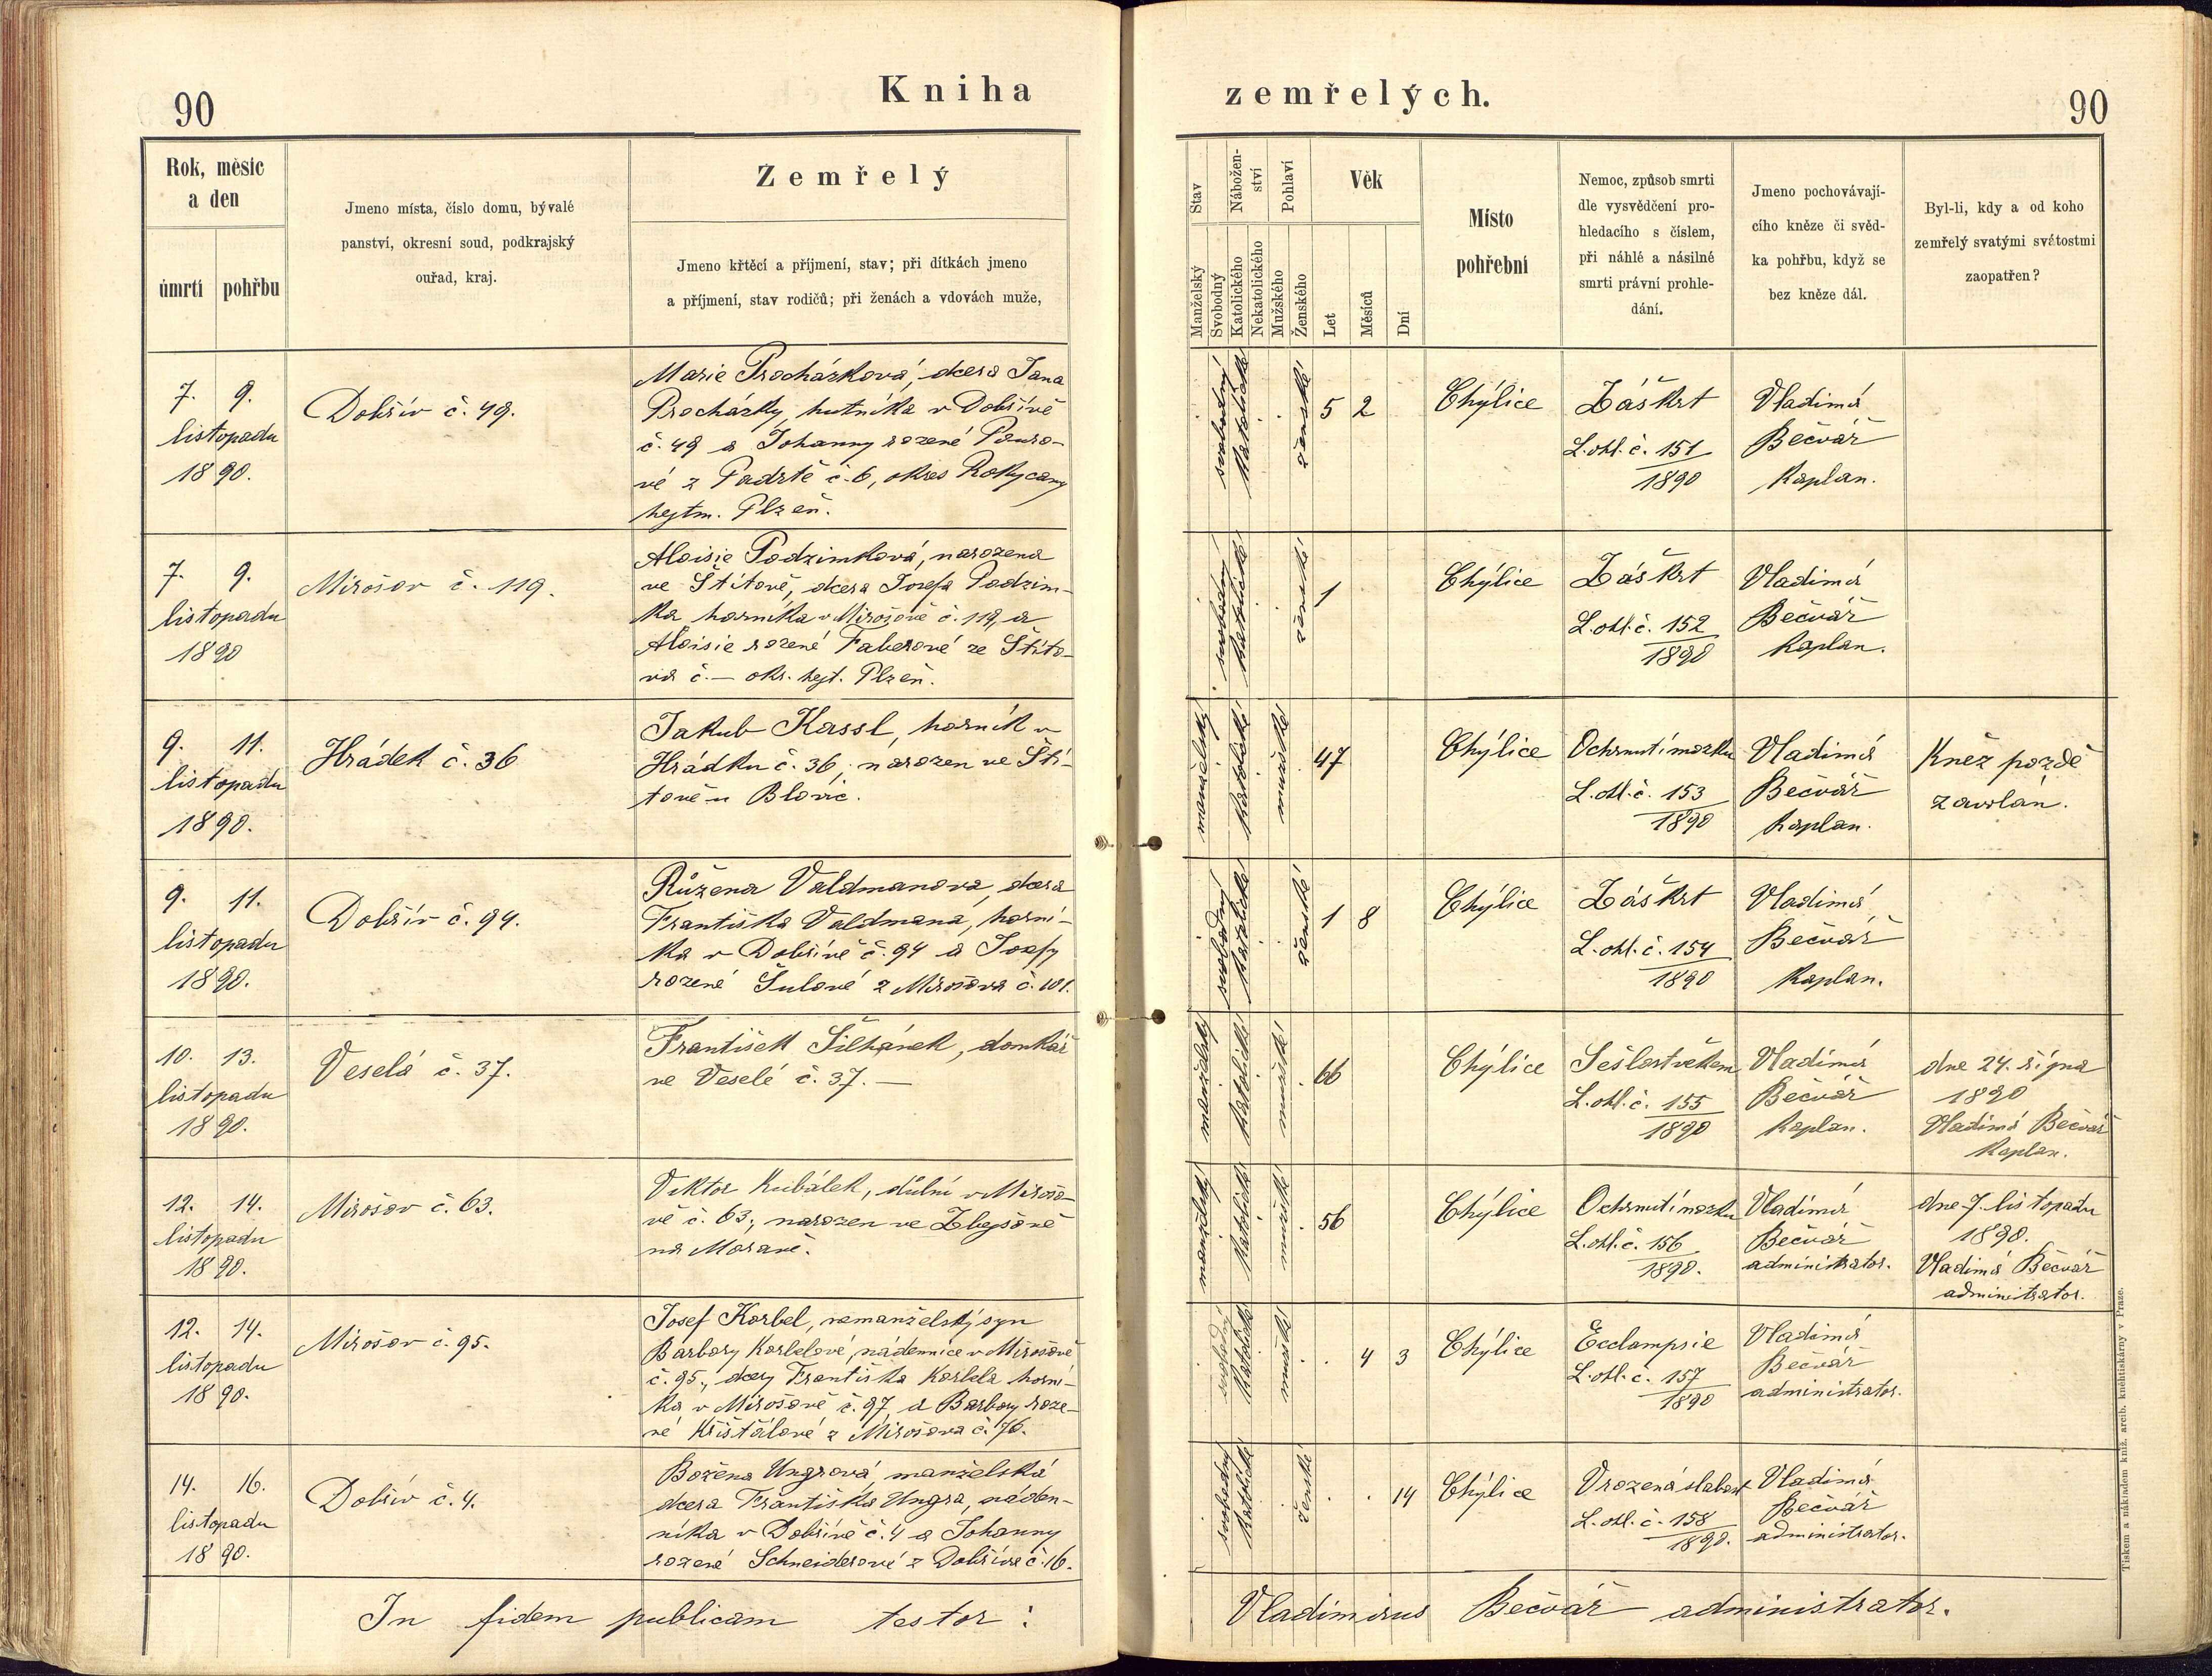 90
Kniha
zemřelých.
90
Rok, měsíc
a den
úmrtí
pohřbu
Jmeno místa, číslo domu, bývalé
panství, okresní soud, podkrajský
ouřad, kraj.
Zemřelý
Jmeno křtěcí a příjmení, stav; při dítkách jmeno
a příjmení, stav rodičů; při ženách a vdovách muže,
Stav
Manželský
Svobodný
Nábožen-
ství
Katolického
Nekatolického
Pohlaví
Mužského
Ženského
Věk
Let
Měsíců
Dní
Místo
pohřební
Nemoc, způsob smrti
dle vysvědčení pro-
hledacího s číslem,
při náhlé a násilné
smrti právní prohle-
dání.
Jmeno pochovávají-
cího kněze či svěd-
ka pohřbu, když se
bez kněze dál.
Byl-li, kdy a od koho
zemřelý svatými svátostmi
zaopatřen?
7. 9.
listopadu
1890.
Dobřív č. 49.
Marie Procházková, dcera Jana
Procházky, hutníka v Dobřívě
č. 49 a Johanny rozené
vé z Padrtě č. 6, okres Rokycany
hejtm. Plzeň.
svobodný
katolické
ženské
5 2
Chýlice
Záškrt
L. ohl. č. 151
1890
Vladimír
Bečvář
kaplan.
7. 9.
listopadu
1890
Mirošov č. 119.
Aloisie Podzimková, narozena
ve Štítově, dcera Josefa Podzim-
ka horníka v Mirošově č. 119, a
Aloisie rozené Faberové ze Štíto-
va č. — okr. hejt. Plzeň.
svobodný
katolické
ženské
1
Chýlice
Záškrt
L. ohl. č. 152
1890
Vladimír
Bečvář
kaplan.
9. 11.
listopadu
1890.
Hrádek č. 36
Jakub Kassl, horník v
Hrádku č. 36, narozen ve Ští-
tově u Blovic.
manželský
katolické
mužské
47
Chýlice
Ochrnutí mozku
L. ohl. č. 153
1890
Vladimír
Bečvář
kaplan.
Kněz pozdě
zavolán.
9. 11.
listopadu
1890.
Dobřív č. 94.
Růžena Valdmanova, dcera
Františka Valdmana, horní-
ka v Dobřívě č. 94 a Josefy
rozené Šulové z Mirošova č. 101.
svobodný
katolické
ženské
1 8
Chýlice
Záškrt
L. ohl. č. 154
1890
Vladimír
Bečvář
kaplan.
10. 13.
listopadu
1890.
Veselá č. 37.
František Šilhánek, domkář
ve Veselé č. 37. —
manželský
katolické
mužské
66
Chýlice
Sešlost věkem
L. ohl. č. 155
1890
Vladimír
Bečvář
kaplan.
dne 24. října
1890
Vladimír Bečvář
kaplan.
12. 14.
listopadu
1890.
Mirošov č. 63.
Viktor Kubálek, důlní v Mirošo-
vě č. 63, narozen ve Zbejšově
na Moravě.
manželský
katolické
mužské
56
Chýlice
Ochrnutí mozku
L. ohl. č. 156
1890.
Vladimír
Bečvář
administrator.
dne 7. listopadu
1890.
Vladimír Bečvář
administrator.
12. 14.
listopadu
1890.
Mirošov č. 95.
Josef Korbel, nemanželský syn
Barbory Korbelové, nádennice v Mirošově
č. 95., dcery Františka Korbela horní-
ka v Mirošově č. 97 a Barbory roze-
né Křišťálové z Mirošova č. 76.
svobodný
katolické
mužské
4 3
Chýlice
Ecclampsie
L. ohl. č. 157
1890
Vladimír
Bečvář
administrator.
14. 16.
listopadu
1890.
Dobřív č. 4.
Božena Ungrová, manželská
dcera Františka Ungra, náden-
níka v Dobřívě č. 4 a Johanny
rozené Schneiderové z Dobříva č. 16.
svobodný
katolické
ženské
14
Chýlice
Vrozená slabost
L. ohl. č. 158
1890.
Vladimír
Bečvář
administrator.
In fidem publicam testor: Vladimirus Bečvář administrator.
Tiskem a nákladem kníž. arcib. knihtiskárny v Praze.